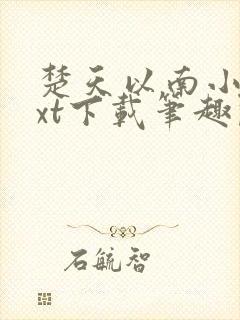 楚天以南小
xt下载笔趣
石毓智